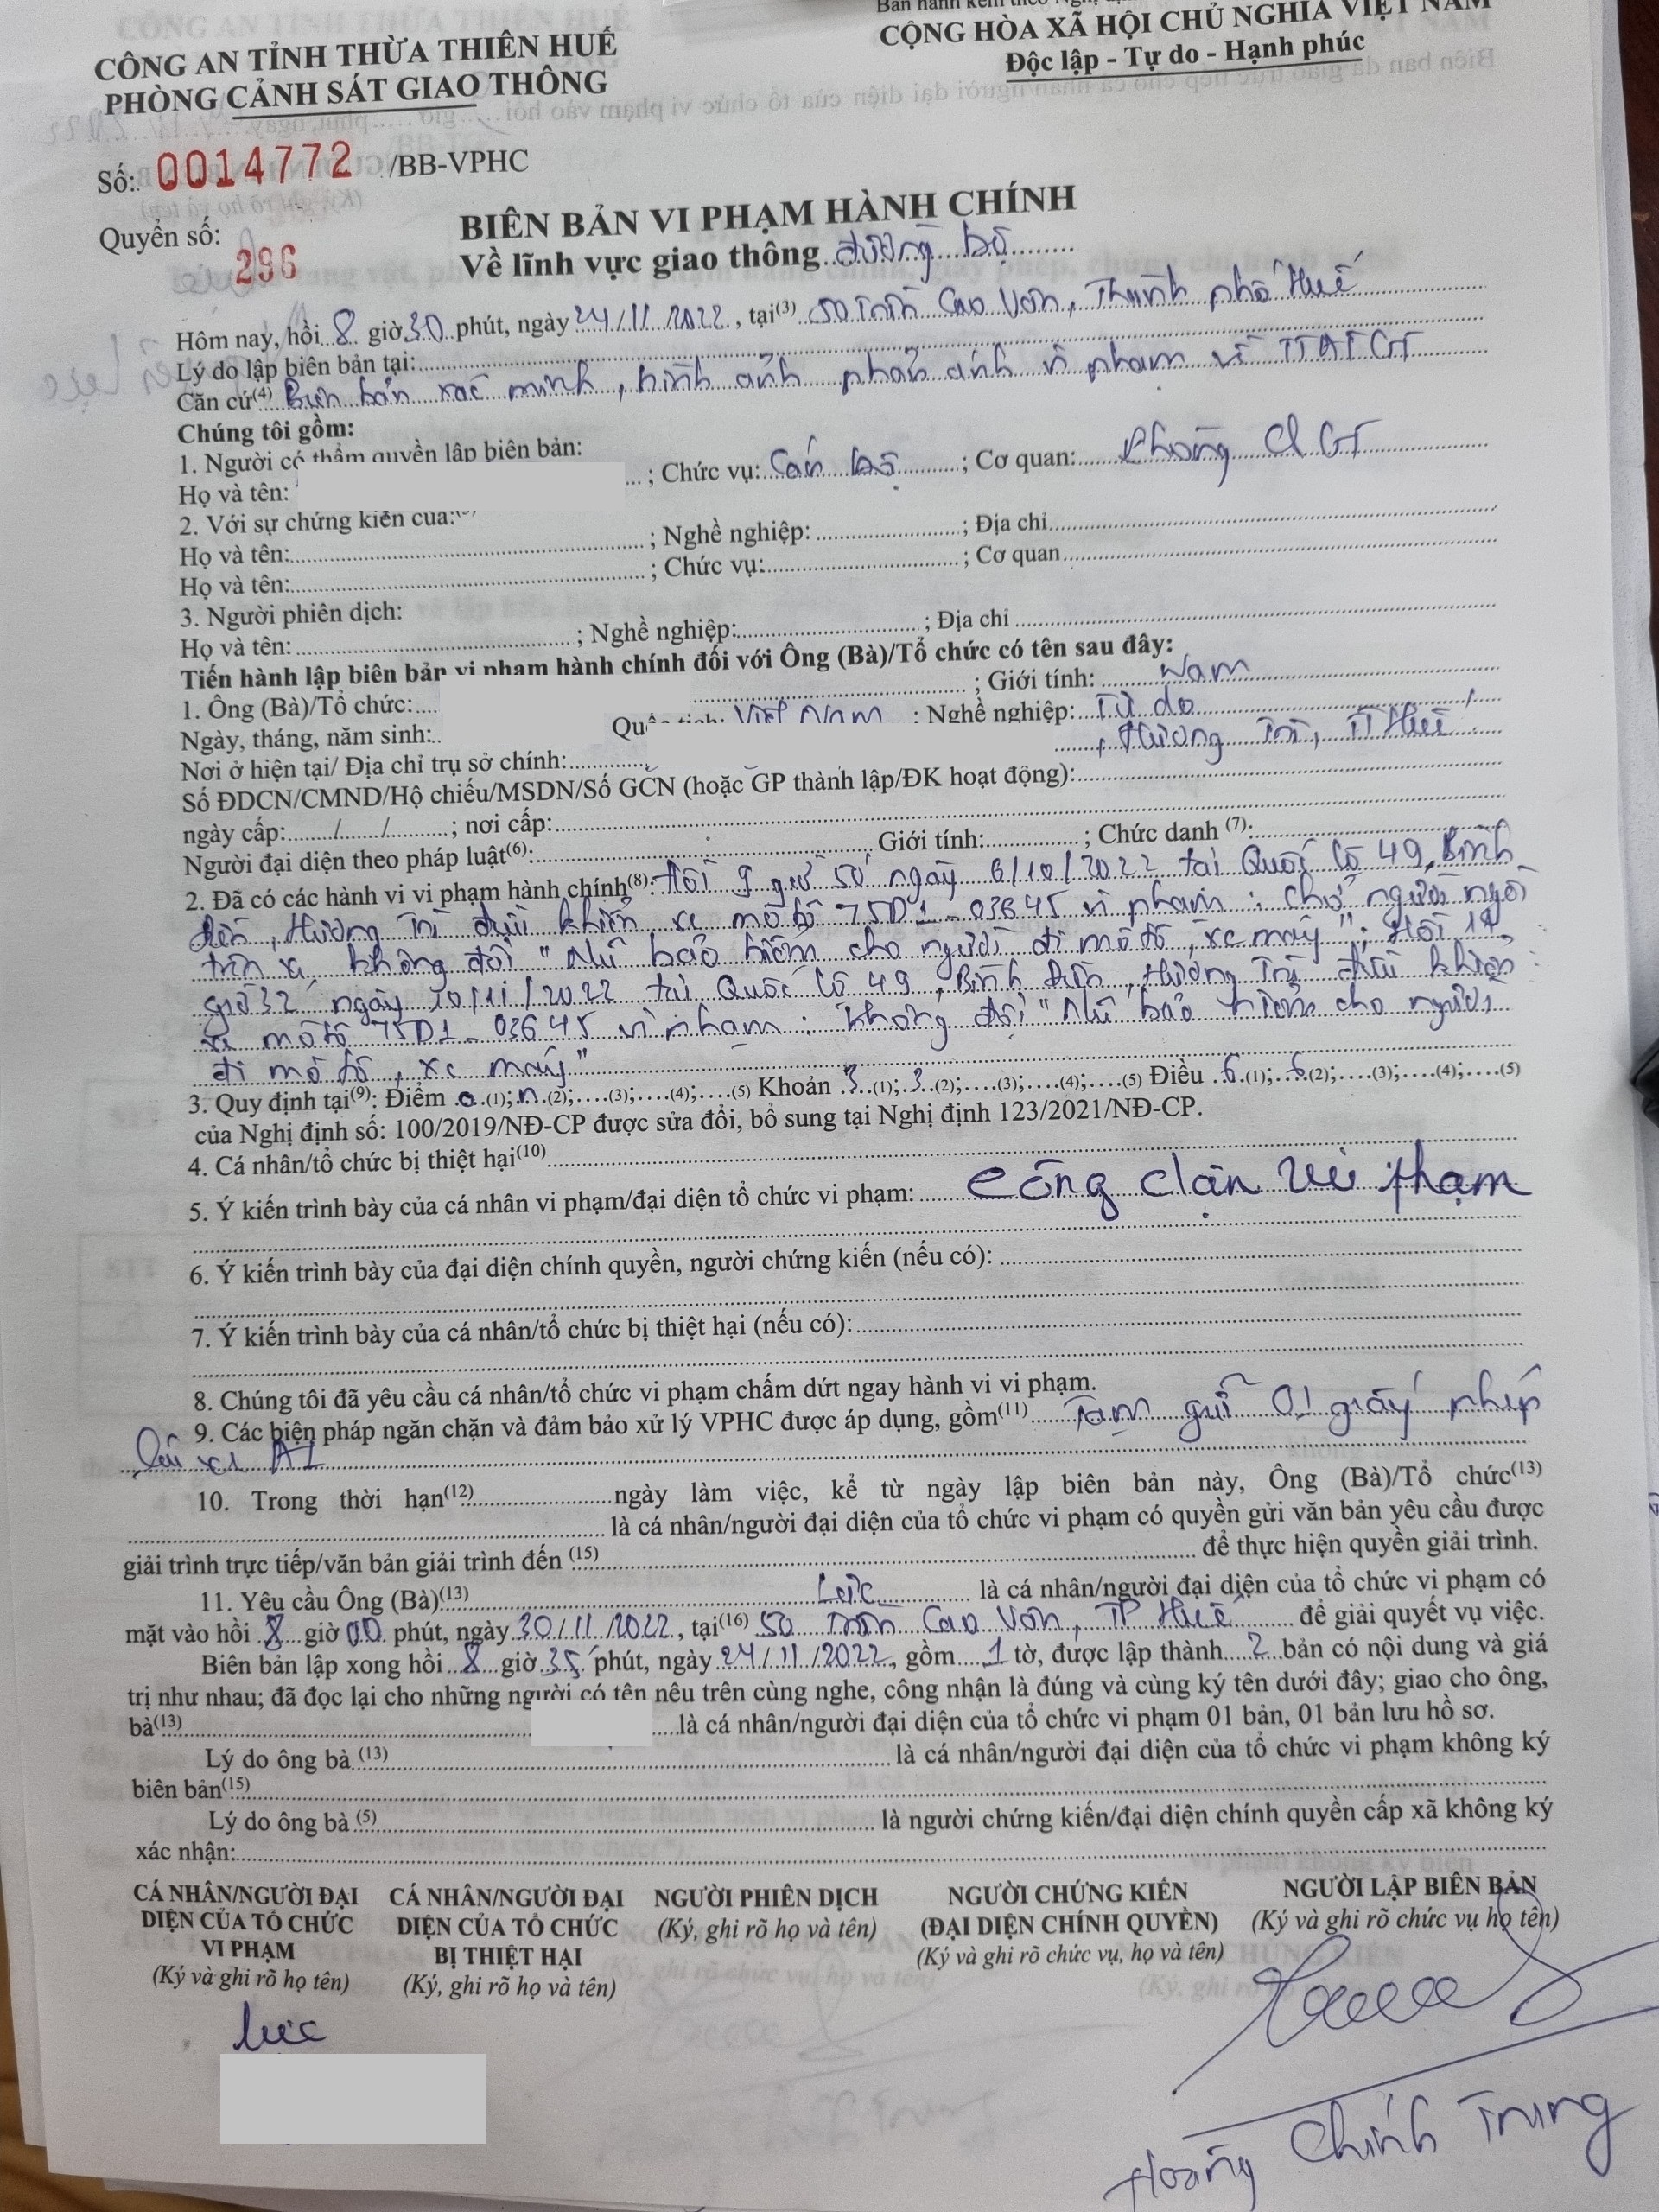 Ban hành kèm theo Nghị
CÔNG AN TỈNH THỪA THIÊN HUẾ
CỘNG HÒA XÃ HỘI CHỦ NGHĨA VIỆT NAM
PHÒNG CẢNH SÁT GIAO THÔNG
Độc lập - Tự do - Hạnh phúc
Số: 0014772 /BB-VPHC
Quyển số: 296
BIÊN BẢN VI PHẠM HÀNH CHÍNH
Về lĩnh vực giao thông đường bộ
Hôm nay, hồi 8 giờ 30 phút, ngày 24/11/2022, tại(3) 50 Trần Cao Vân, Thành phố Huế
Lý do lập biên bản tại:
Căn cứ(4) Biên bản xác minh, hình ảnh phản ánh vi phạm về TTATGT
Chúng tôi gồm:
1. Người có thẩm quyền lập biên bản:
Họ và tên: ; Chức vụ: Cán bộ ; Cơ quan: Phòng CSGT
2. Với sự chứng kiến của:
Họ và tên: ; Nghề nghiệp: ; Địa chỉ
Họ và tên: ; Chức vụ: ; Cơ quan
3. Người phiên dịch:
Họ và tên: ; Nghề nghiệp: ; Địa chỉ
Tiến hành lập biên bản vi phạm hành chính đối với Ông (Bà)/Tổ chức có tên sau đây:
1. Ông (Bà)/Tổ chức: ; Giới tính: Nam
Ngày, tháng, năm sinh: Quốc tịch: Việt Nam ; Nghề nghiệp: Tự do
Nơi ở hiện tại/ Địa chỉ trụ sở chính: , Hương Trà, TT Huế
Số ĐDCN/CMND/Hộ chiếu/MSDN/Số GCN (hoặc GP thành lập/ĐK hoạt động):
ngày cấp: / / ; nơi cấp:
Người đại diện theo pháp luật(6): Giới tính: ; Chức danh (7):
2. Đã có các hành vi vi phạm hành chính(8): Hồi 9 giờ 50 ngày 6/10/2022 tại Quốc lộ 49, Bình
Điền, Hương Trà điều khiển xe mô tô 75D1-03645 vi phạm: chở người ngồi
trên xe không đội "Mũ bảo hiểm cho người đi mô tô, xe máy"; Hồi 14
giờ 32 ngày 10/11/2022 tại Quốc lộ 49, Bình Điền, Hương Trà điều khiển
xe mô tô 75D1-03645 vi phạm: không đội "Mũ bảo hiểm cho người
đi mô tô, xe máy"
3. Quy định tại(9): Điểm o (1); n (2); (3); (4); (5) Khoản 3 (1); 3 (2); (3); (4); (5) Điều 6 (1); 6 (2); (3); (4); (5)
của Nghị định số: 100/2019/NĐ-CP được sửa đổi, bổ sung tại Nghị định 123/2021/NĐ-CP.
4. Cá nhân/tổ chức bị thiệt hại(10)
5. Ý kiến trình bày của cá nhân vi phạm/đại diện tổ chức vi phạm: Công dân vi phạm
6. Ý kiến trình bày của đại diện chính quyền, người chứng kiến (nếu có):
7. Ý kiến trình bày của cá nhân/tổ chức bị thiệt hại (nếu có):
8. Chúng tôi đã yêu cầu cá nhân/tổ chức vi phạm chấm dứt ngay hành vi vi phạm.
9. Các biện pháp ngăn chặn và đảm bảo xử lý VPHC được áp dụng, gồm(11) Tạm giữ 01 giấy phép
lái xe A1
10. Trong thời hạn(12) ngày làm việc, kể từ ngày lập biên bản này, Ông (Bà)/Tổ chức(13)
là cá nhân/người đại diện của tổ chức vi phạm có quyền gửi văn bản yêu cầu được
giải trình trực tiếp/văn bản giải trình đến (15) để thực hiện quyền giải trình.
11. Yêu cầu Ông (Bà)(13) Lực là cá nhân/người đại diện của tổ chức vi phạm có
mặt vào hồi 8 giờ 00 phút, ngày 30/11/2022, tại(16) 50 Trần Cao Vân, TP Huế để giải quyết vụ việc.
Biên bản lập xong hồi 8 giờ 35 phút, ngày 24/11/2022, gồm 1 tờ, được lập thành 2 bản có nội dung và giá
trị như nhau; đã đọc lại cho những người có tên nêu trên cùng nghe, công nhận là đúng và cùng ký tên dưới đây; giao cho ông,
bà(13) là cá nhân/người đại diện của tổ chức vi phạm 01 bản, 01 bản lưu hồ sơ.
Lý do ông bà (13) là cá nhân/người đại diện của tổ chức vi phạm không ký
biên bản(15)
Lý do ông bà (5) là người chứng kiến/đại diện chính quyền cấp xã không ký
xác nhận:
CÁ NHÂN/NGƯỜI ĐẠI DIỆN CỦA TỔ CHỨC VI PHẠM
(Ký và ghi rõ họ tên)
CÁ NHÂN/NGƯỜI ĐẠI DIỆN CỦA TỔ CHỨC BỊ THIỆT HẠI
(Ký, ghi rõ họ và tên)
NGƯỜI PHIÊN DỊCH
(Ký, ghi rõ họ và tên)
NGƯỜI CHỨNG KIẾN
(ĐẠI DIỆN CHÍNH QUYỀN)
(Ký và ghi rõ chức vụ, họ và tên)
NGƯỜI LẬP BIÊN BẢN
(Ký và ghi rõ chức vụ họ tên)
Lực
Hoàng Chính Trung